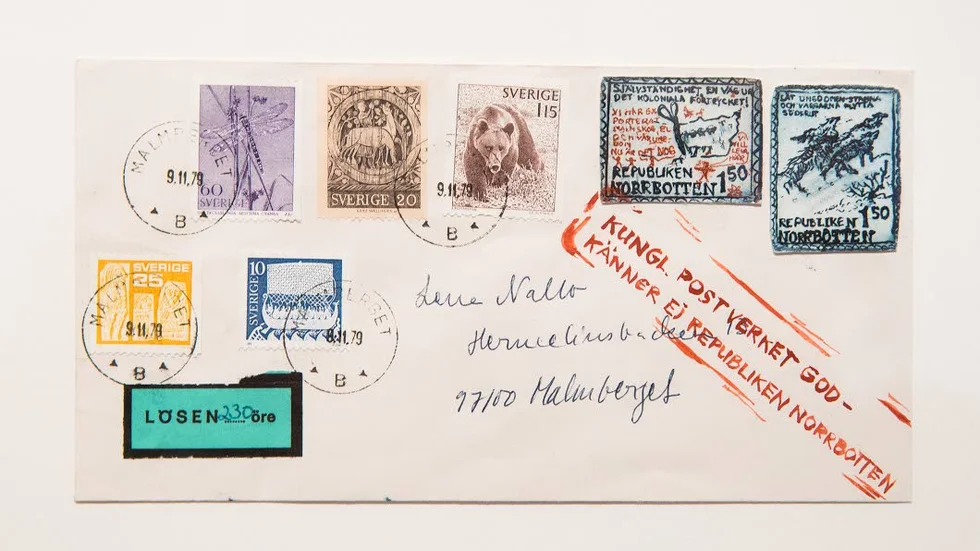 MALMBERGET
9.11.79
B
60
SVERIGE
SVERIGE 20
SVERIGE
1 15
9.11.79
B
SJÄLVSTÄNDIGHET EN VÄG UR
DET KOLONIALA FÖRTRYCKET!
REPUBLIKEN
NORRBOTTEN 1 50
LÅT UNGDOMEN STANNA
OCH VARGARNA FLYTTA
SÖDERUT
REPUBLIKEN 1 50
NORRBOTTEN
SVERIGE
25
MALMBERGET
9.11.79
B
10
SVERIGE
MALMBERGET
9.11.79
B
KUNGL. POSTVERKET GOD-
KÄNNER EJ REPUBLIKEN NORRBOTTEN
Lena Nallo
97100 Malmberget
LÖSEN 230 öre